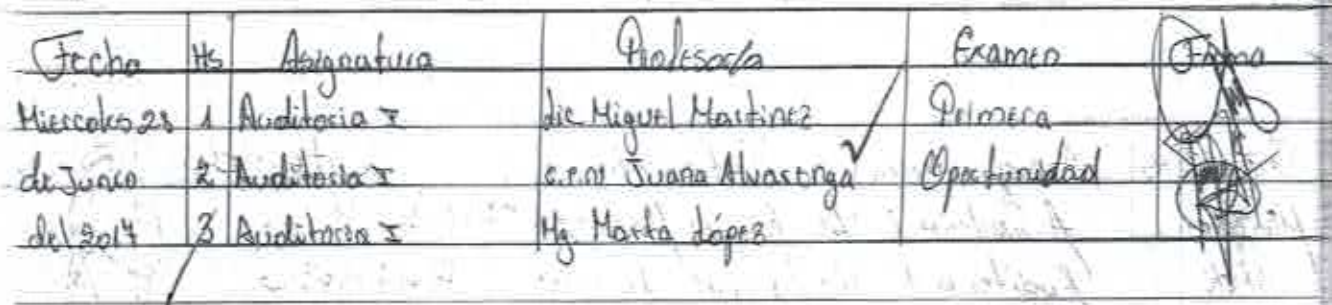 Fecha Hs Asignatura Profesor/a Examen Firma
Miercoles 28 1 Auditoria I Lic Miguel Martinez Primera
de Junio 2 Auditoria I C.P.N Juana Alvarenga Oportunidad
del 2017 3 Auditoria I Mg. Marta López